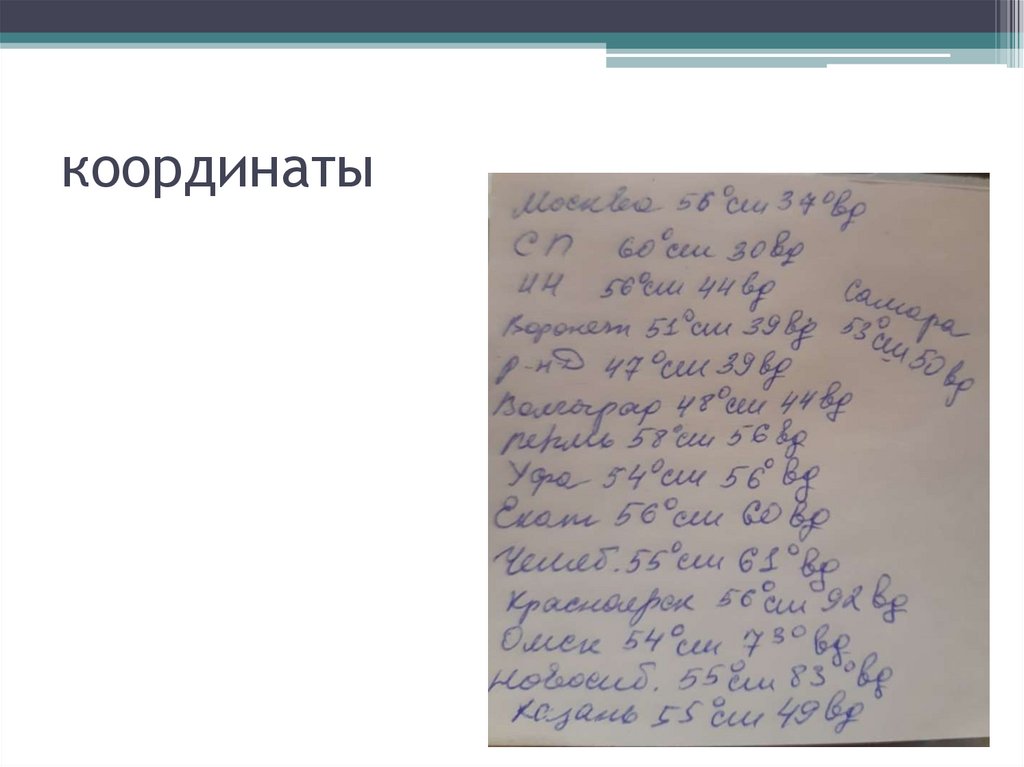 координаты
Москва 56°сш 37°вд
СП 60°сш 30вд
НН 56°сш 44вд
Воронеж 51°сш 39вд
Самара
53°сш 50вд
Р-нД 47°сш 39вд
Волгоград 48°сш 44вд
Пермь 58°сш 56вд
Уфа 54°сш 56°вд
Екат 56°сш 60вд
Челяб. 55°сш 61°вд
Красноярск 56°сш 92вд
Омск 54°сш 73°вд
Новосиб. 55°сш 83°вд
Казань 55°сш 49вд